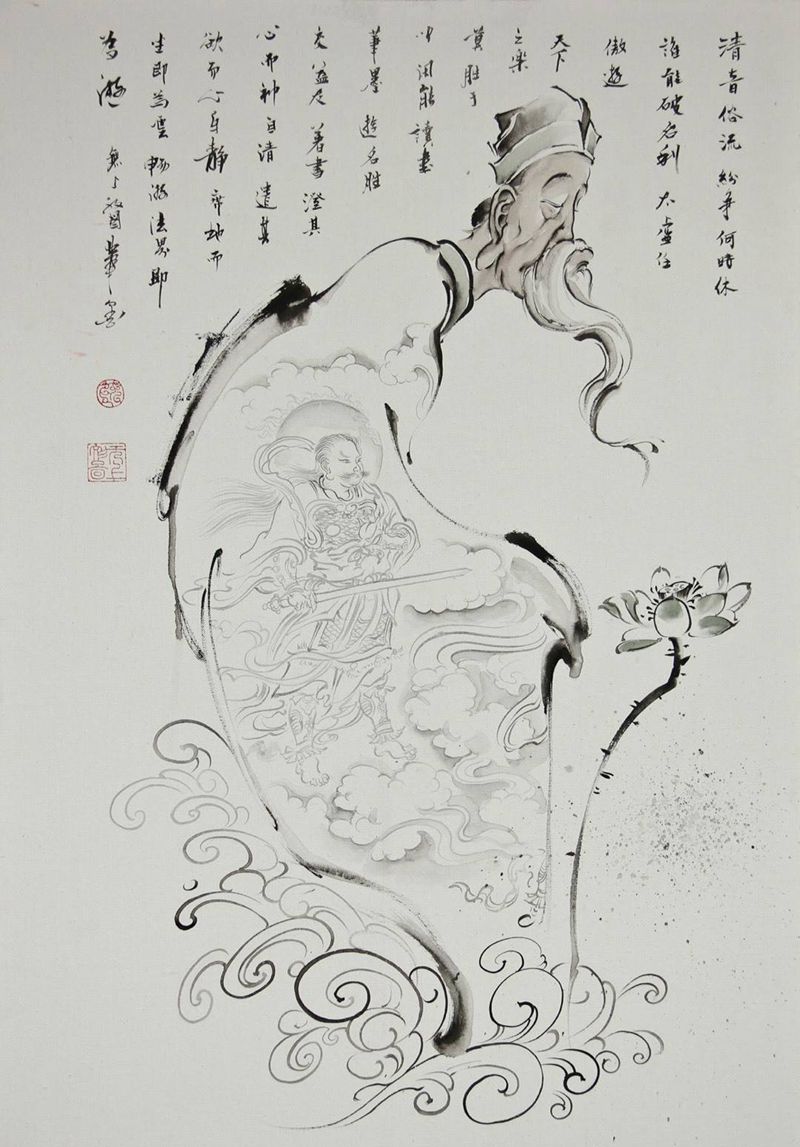 清音俗流紛爭何時休
誰能破名利太虛任
傲遊
天下
之樂
莫勝于
閑能讀書
筆墨遊名勝
交益友著書澄其
心而神自清遣其
欲而心自靜席地而
坐即為雲暢游法界即
為游